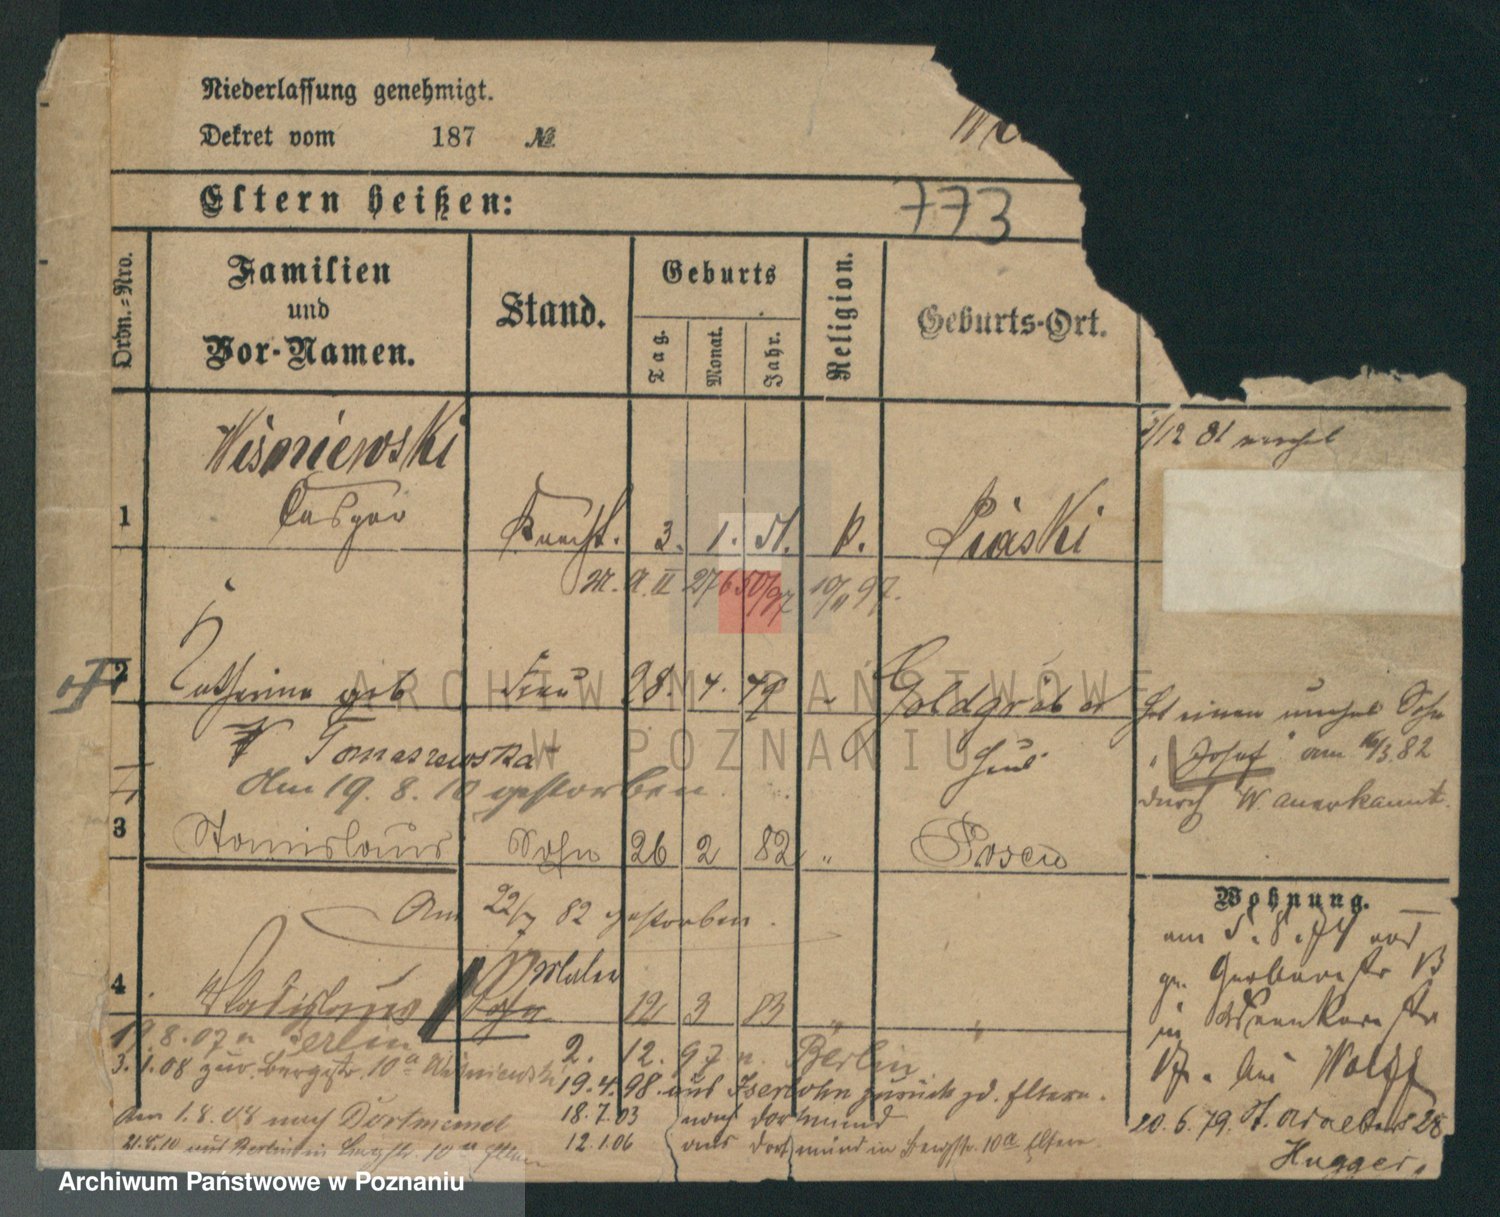 Niederlassung genehmigt.
Dekret vom 187 №
773
Eltern heißen:
Ordn.-Nro.
Familien
und
Vor-Namen.
Stand.
Geburts
Tag.
Monat.
Jahr.
Religion.
Geburts-Ort.
Wiśniewski
1 Caspar Knecht. 3. 1. 51. k. Piaski
2 Catharina geb Frau 28. 4. 49 Goldgräber
Tomaszewska
Am 19. 8. 10 gestorben.
3 Stanislaus Sohn 26 2 82 " Posen
Am 22/7 82 gestorben.
Maler
4 Wladislaus Sohn 12 3 83 " "
19.8.07 n Berlin
2. 12. 97 n. Berlin
3.1.08 zur. Bergstr. 10a Wiśniewski
19.4.98. aus Iserlohn zurück zd. Eltern.
Am 1.8.08 nach Dortmund
18.7.03 nach Dortmund
12.1.06 aus Dortmund in Bergstr. 10a Eltern
aus Berlin in Bergstr. 10a Eltern
12 81
Hat einen unehel Sohn
"Josef" am 16/3.82
durch W. anerkannt.
Wohnung.
am 5.8.74
gr. Gerberstr
in
bei Wolff
20.6.79. St. Adalbert 28
Hugger.
ARCHIWUM PAŃSTWOWE
W POZNANIU
Archiwum Państwowe w Poznaniu